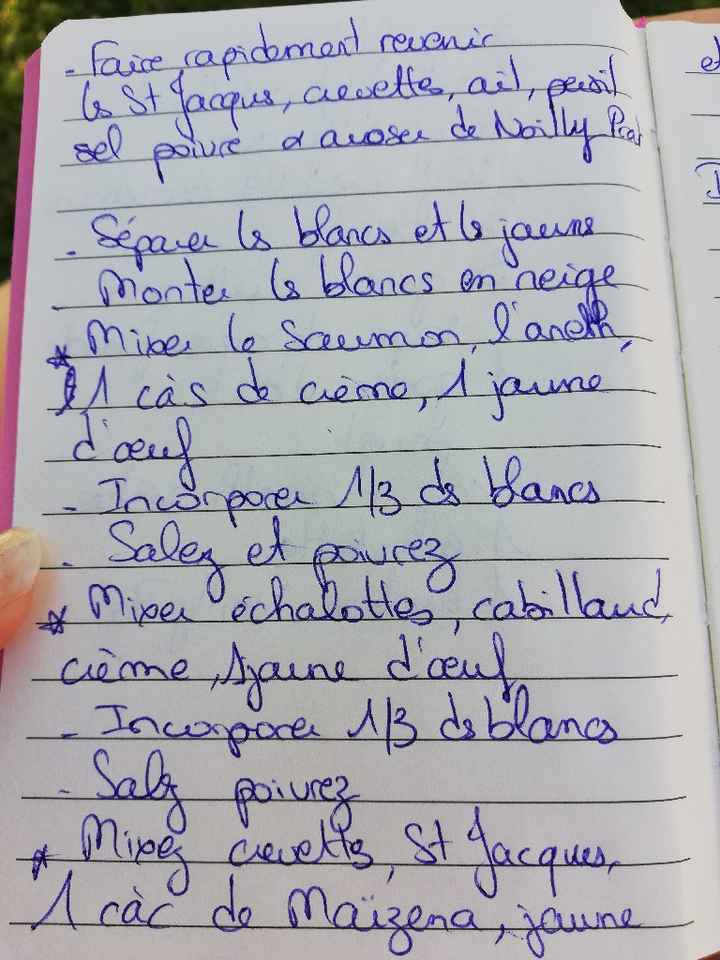 - Faire rapidement revenir
les St Jacques, crevettes, ail, persil
sel poivre et arroser de Noilly Prat
- Séparer les blancs et le jaune
- Monter les blancs en neige
* Mixer le Saumon, l'aneth,
1 càs de crème, 1 jaune
d'œuf
- Incorporer 1/3 des blancs
- Salez et poivrez
* Mixer échalottes, cabillaud,
crème, 1 jaune d'œuf
- Incorporer 1/3 des blancs
- Salez poivrez
* Mixez crevettes, St Jacques,
1 càc de Maïzena, jaune